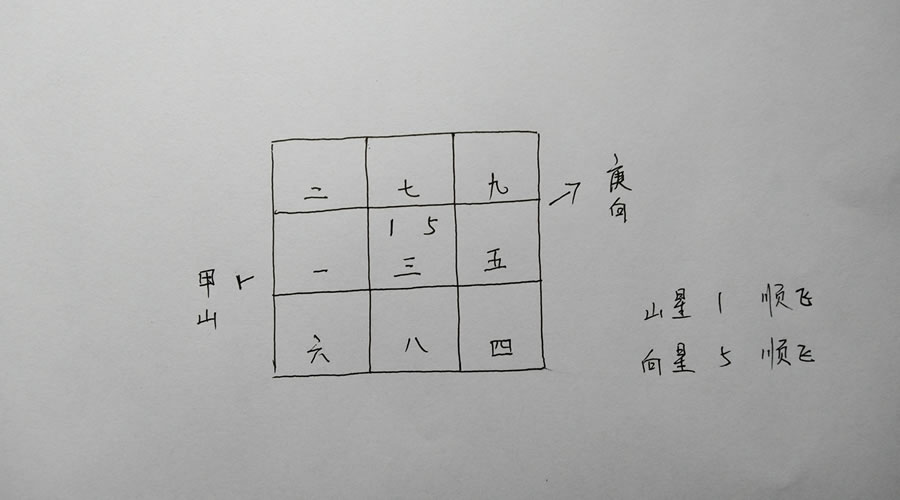 二 七 九
庚向
1 5
一 三 五
甲山
山星 1 顺飞
六 八 四
向星 5 顺飞